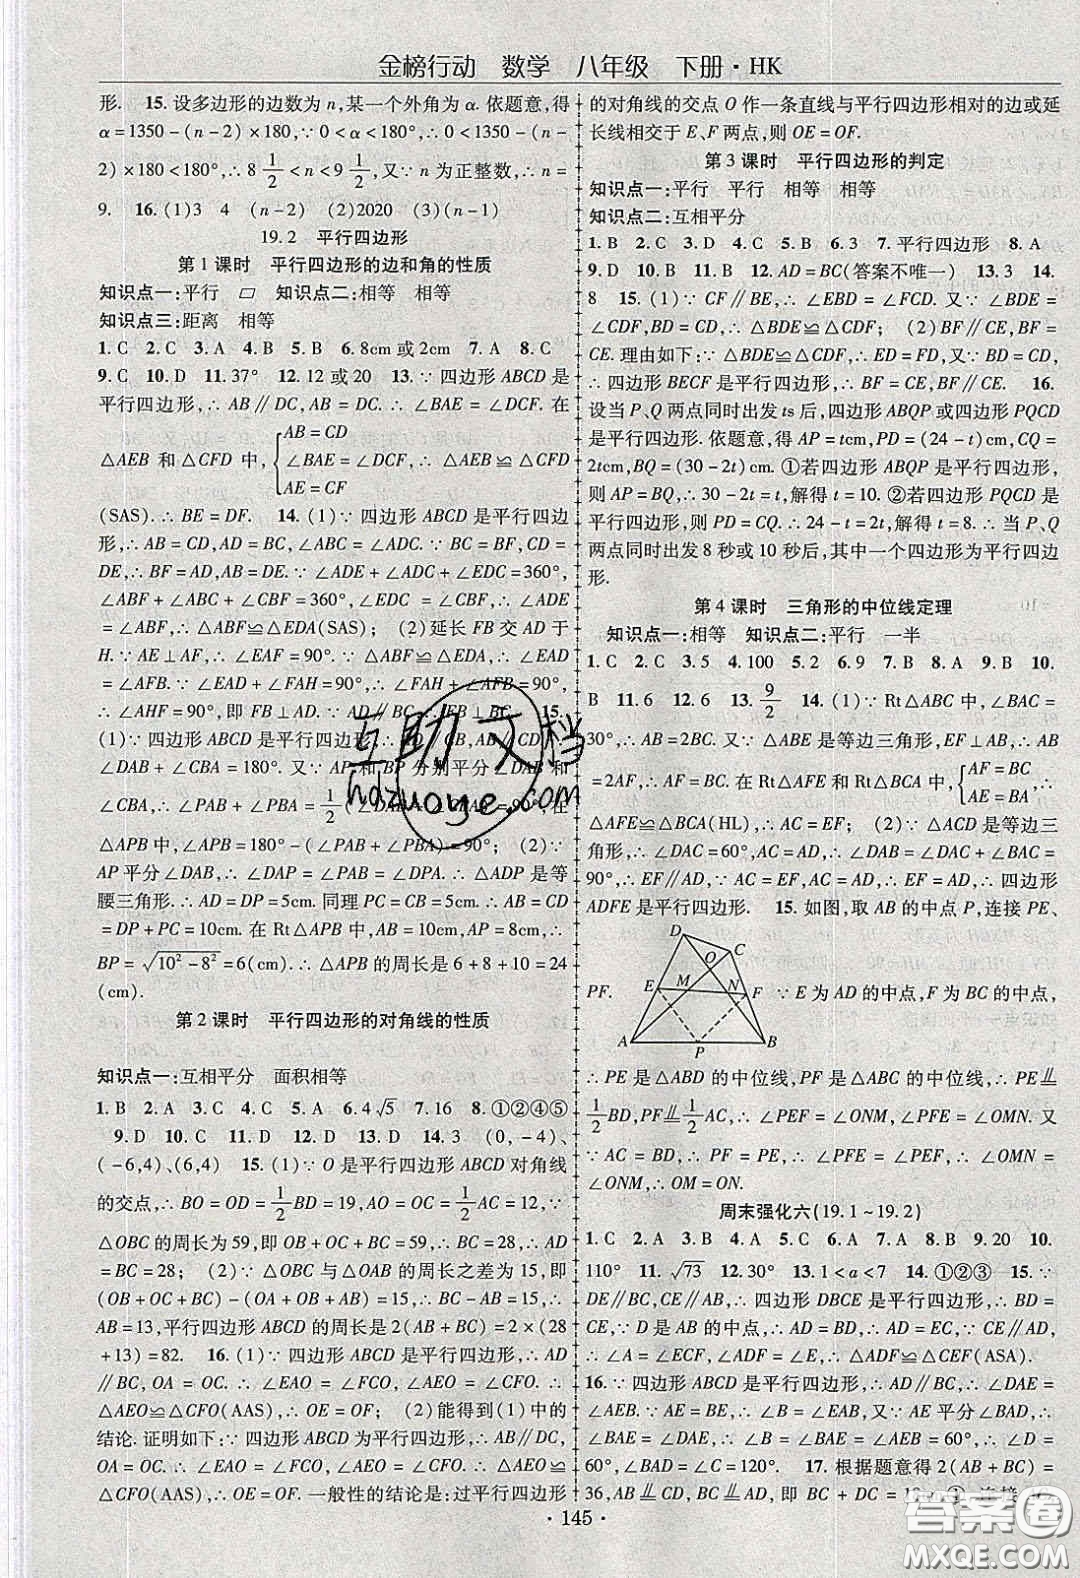 金榜行动 数学 八年级 下册·HK
形. 15. 设多边形的边数为 n,某一个外角为 α. 依题意,得
α=1350-(n-2)×180,∵0<α<180°,∴0<1350-(n-
2)×180<180,∴8 1/2<n<9 1/2,又∵n为正整数,∴n=
9. 16. (1)3 4 (n-2) (2)2020 (3)(n-1)
19.2 平行四边形
第1课时 平行四边形的边和角的性质
知识点一:平行 ▱ 知识点二:相等 相等
知识点三:距离 相等
1. C 2. C 3. A 4. B 5. B 6. 8cm或2cm 7. A 8. C
9. C 10. D 11. 37° 12. 12或20 13. ∵四边形ABCD是
平行四边形,∴AB∥DC,AB=DC. ∴∠BAE=∠DCF. 在
△AEB和△CFD中,{AB=CD ∠BAE=∠DCF,∴△AEB≌△CFD AE=CF
(SAS). ∴BE=DF. 14. (1)∵四边形ABCD是平行四边
形,∴AB=CD,AD=BC. ∵BC=BF,CD=
DE,∴BF=AD,AB=DE. ∵∠ADE+∠ADC+∠EDC=360°,
∠ABF+∠ABC+∠CBF=360°,∠EDC=∠CBF,∴∠ADE
=∠ABF,∴△ABF≌△EDA(SAS); (2)延长FB交AD于
H. ∵AE⊥AF,∴∠EAF=90°. ∵△ABF≌△EDA,∴∠EAD
=∠AFB. ∵∠EAD+∠FAH=90°,∴∠FAH+∠AFB=90°,
∴∠AHF=90°,即FB⊥AD. ∵AD∥BC,∴FB⊥BC. 15.
(1)∵四边形ABCD是平行四边形,∴AD∥CB,AB∥CD. ∴
∠DAB+∠CBA=180°. 又∵AP和BP分别平分∠DAB和
∠CBA,∴∠PAB+∠PBA=1/2(∠DAB+∠CBA)=90°,在
△APB中,∠APB=180°-(∠PAB+∠PBA)=90°; (2)∵
AP平分∠DAB,∴∠DAP=∠PAB. ∴△ADP是等
腰三角形. ∴AD=DP=5cm. 同理PC=CB=5cm. ∴AB=CD
=DP+PC=10cm. 在Rt△APB中,AB=10cm,AP=8cm,∴
BP=√10²-8²=6(cm). ∴△APB的周长是6+8+10=24
(cm).
第2课时 平行四边形的对角线的性质
知识点一:互相平分 面积相等
1. B 2. A 3. C 4. C 5. A 6. 4√5 7. 16 8. ①②④⑤
9. D 10. C 11. B 12. D 13. D 14. 3 (0,-4)、
(-6,4)、(6,4) 15. (1)∵O是平行四边形ABCD对角线
的交点,∴BO=OD=1/2BD=19,AO=OC=1/2AC=12,∵
△OBC的周长为59,即OB+OC+BC=59,∴BC=28,∴AD=
BC=28; (2)∵△OBC与△OAB的周长之差为15,即
(OB+OC+BC)-(OA+OB+AB)=15,∴BC-AB=15,∴
AB=13,平行四边形ABCD的周长是2(AB+BC)=2×(28
+13)=82. 16. (1)∵四边形ABCD是平行四边形,∴AD
∥BC,OA=OC. ∴∠EAO=∠FCO,∠AEO=∠CFO. ∴
△AEO≌△CFO(AAS),∴OE=OF; (2)能得到(1)中的
结论. 证明如下:∵四边形ABCD为平行四边形,∴AB∥DC,
OA=OC. ∴∠EAO=∠FCO,∠AEO=∠CFO. ∴△AEO≌
△CFO(AAS),∴OE=OF. 一般性的结论是:过平行四边形
的对角线的交点O作一条直线与平行四边形相对的边或延
长线相交于E、F两点,则OE=OF.
第3课时 平行四边形的判定
知识点一:平行 平行 相等 相等
知识点二:互相平分
1. B 2. C 3. D 4. B 5. B 6. 3 7. 平行四边形 8. A
9. D 10. D 11. B 12. AD=BC(答案不唯一) 13. 3 14.
8 15. (1)∵CF∥BE,∴∠EBD=∠FCD. 又∵∠BDE=
∠CDF,BD=CD,∴△BDE≌△CDF; (2)BF=CE,BF∥
CE. 理由如下:∵△BDE≌△CDF,∴ED=FD,又∵BD=CD,
∴四边形BECF是平行四边形,∴BF=CE,BF∥CE. 16.
设当P、Q两点同时出发ts后,四边形ABQP或四边形PQCD
是平行四边形. 依题意,得AP=tcm,PD=(24-t)cm,CQ=
2tcm,BQ=(30-2t)cm. ①若四边形ABQP是平行四边形,
则AP=BQ,∴30-2t=t,解得t=10. ②若四边形PQCD是
平行四边形,则PD=CQ. ∴24-t=2t,解得t=8. ∴当P、Q
两点同时出发8秒或10秒后,其中一个四边形为平行四边
形.
第4课时 三角形的中位线定理
知识点一:相等 知识点二:平行 一半
1. C 2. C 3. 5 4. 100 5. 2 6. 9 7. B 8. A 9. B 10.
B 11. 6 12. 6 13. 9/2 14. (1)∵Rt△ABC中,∠BAC=
30°,∴AB=2BC. 又∵△ABE是等边三角形,EF⊥AB,∴AB
=2AF,∴AF=BC. 在Rt△AFE和Rt△BCA中,{AF=BC AE=BA,∴
△AFE≌△BCA(HL),∴AC=EF; (2)∵△ACD是等边三
角形,∴∠DAC=60°,AC=AD,∴∠DAB=∠DAC+∠BAC=
90°,∴EF∥AD,∵AC=EF,AC=AD,∴EF=AD,∴四边形
ADFE是平行四边形. 15. 如图,取AB的中点P,连接PE、
D
O C
E M N F
A P B
PF. ∵E为AD的中点,F为BC的中点,
∴PE是△ABD的中位线,PF是△ABC的中位线,∴PE∥
1/2BD,PF∥1/2AC,∴∠PEF=∠ONM,∠PFE=∠OMN. 又
∵AC=BD,∴PF=PE,∴∠PFE=∠PEF,∴∠OMN
=∠ONM,∴OM=ON.
周末强化六(19.1~19.2)
1. C 2. B 3. B 4. A 5. C 6. D 7. A 8. B 9. 20 10.
110° 11. √73 12. 30° 13. 1<a<7 14. ①②③ 15. ∵
DE∥BC,BD∥CE,∴四边形DBCE是平行四边形,∴BD=
CE,∵D是AB的中点,∴AD=BD,∴AD=EC,∵CE∥AD,
∴∠A=∠ECF,∠ADF=∠E,∴△ADF≌△CEF(ASA).
16. ∵四边形ABCD是平行四边形,∴AD∥BC,∴∠DAE=
∠AEB,∵AE=AB,∴∠B=∠AEB,又∵AE平分∠BAD,∴
∠BAE=∠DAE,∴∠B=∠AEB=∠BAE=60°,∴∠D=
60°,∠BAD=∠C=120°. 17. 根据题意得2(AB+BC)=
36,AB∥CD,AD∥BC,即BC+DC=18
· 145 ·
互助文档
hdzuoye.com
答案圈
MXQE.COM